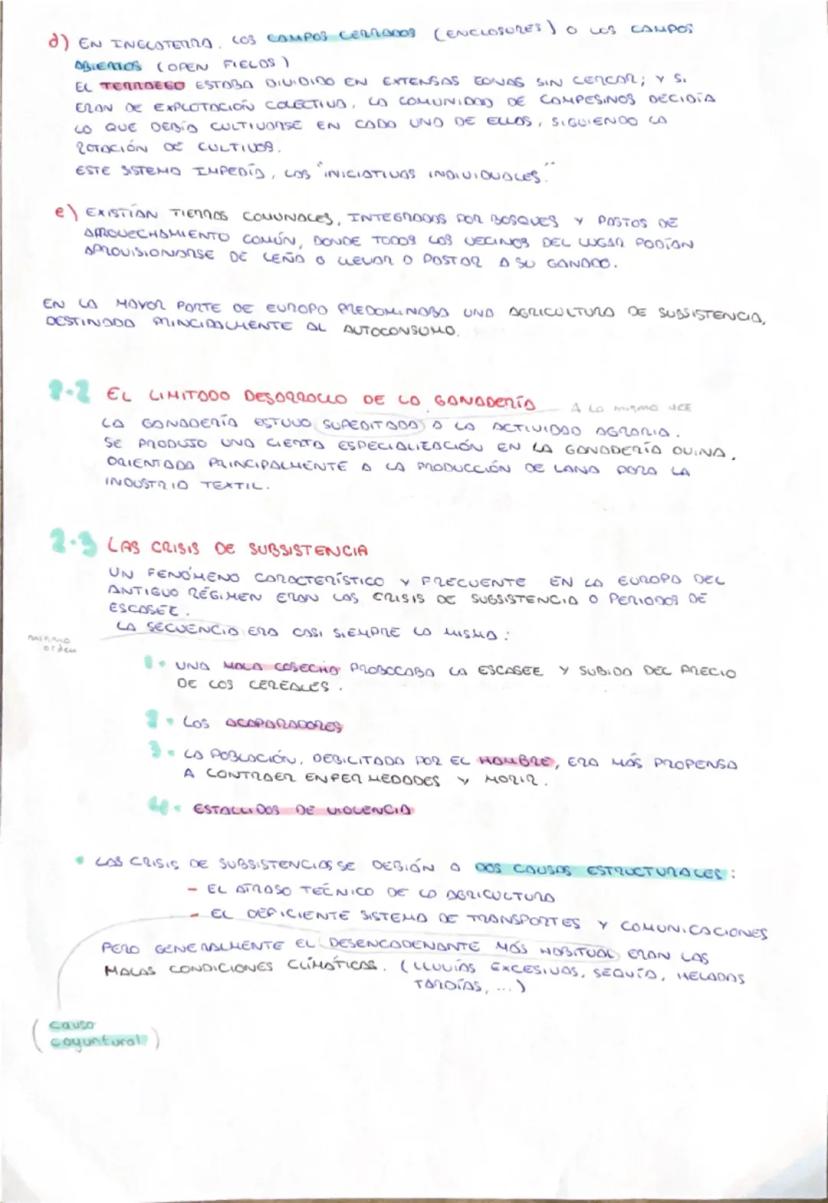 d) EN INGLATERRA, LOS CAMPOS CERRADOS (ENCLOSURES) O LOS CAMPOS
ABIERTOS (OPEN FIELDS)
EL TERRAEGO ESTABA DIVIDIDO EN EXTENSAS ZONAS SIN CERCAR; Y SI
ERAN DE EXPLOTACIÓN COLECTIVA, LA COMUNIDAD DE CAMPESINOS DECIDÍA
LO QUE DEBÍA CULTIVARSE EN CADA UNA DE ELLAS, SIGUIENDO LA
ROTACIÓN DE CULTIVOS.
ESTE SISTEMA IMPEDÍA, LAS "INICIATIVAS INDIVIDUALES."
e) EXISTÍAN TIERRAS COMUNALES, INTEGRADAS POR BOSQUES Y PASTOS DE
APROVECHAMIENTO COMÚN, DONDE TODOS LOS VECINOS DEL LUGAR PODÍAN
APROVISIONARSE DE LEÑA O LLEVAR A PASTAR A SU GANADO.
EN LA MAYOR PARTE DE EUROPA PREDOMINABA UNA AGRICULTURA DE SUBSISTENCIA,
DESTINADA PRINCIPALMENTE AL AUTOCONSUMO.
2.2 EL LIMITADO DESARROLLO DE LA GANADERÍA
A la misma vez
LA GANADERÍA ESTUVO SUPEDITADA A LA ACTIVIDAD AGRARIA.
SE PRODUJO UNA CIERTA ESPECIALIZACIÓN EN LA GANADERÍA OVINA,
ORIENTADA PRINCIPALMENTE A LA PRODUCCIÓN DE LANA PARA LA
INDUSTRIA TEXTIL.
2.3 LAS CRISIS DE SUBSISTENCIA
UN FENÓMENO CARACTERÍSTICO Y FRECUENTE EN LA EUROPA DEL
ANTIGUO RÉGIMEN ERAN LAS CRISIS DE SUBSISTENCIA O PERIODOS DE
ESCASEZ.
LA SECUENCIA ERA CASI SIEMPRE LA MISMA:
mismo
orden
1. UNA MALA COSECHA PROBOCABA LA ESCASEZ Y SUBIDA DEL PRECIO
DE LOS CEREALES.
2. LOS ACAPARADORES
3. LA POBLACIÓN, DEBILITADA POR EL HAMBRE, ERA MÁS PROPENSA
A CONTRAER ENFERMEDADES Y MORIR.
4. ESTALLIDOS DE VIOLENCIA
• LAS CRISIS DE SUBSISTENCIAS SE DEBIÓN A DOS CAUSAS ESTRUCTURALES:
- EL ATRASO TÉCNICO DE LA AGRICULTURA
- EL DEFICIENTE SISTEMA DE TRANSPORTES Y COMUNICACIONES
PERO GENERALMENTE EL DESENCADENANTE MÁS HABITUAL ERAN LAS
MALAS CONDICIONES CLIMÁTICAS. (LLUVIAS EXCESIVAS, SEQUÍA, HELADAS
TARDÍAS, ...)
(causa
coyuntural)